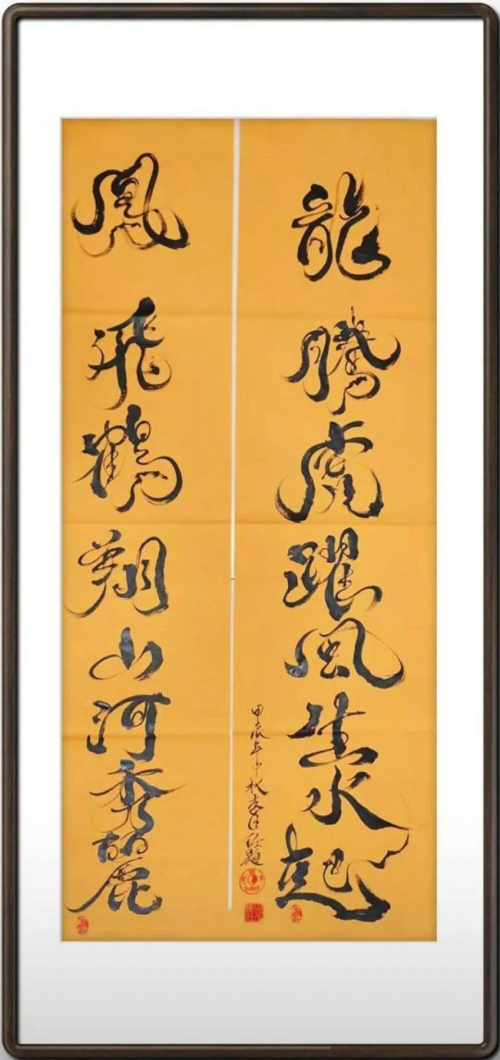 龍騰虎躍風生水起
甲辰年中秋
鳳飛鶴翔山河秀麗